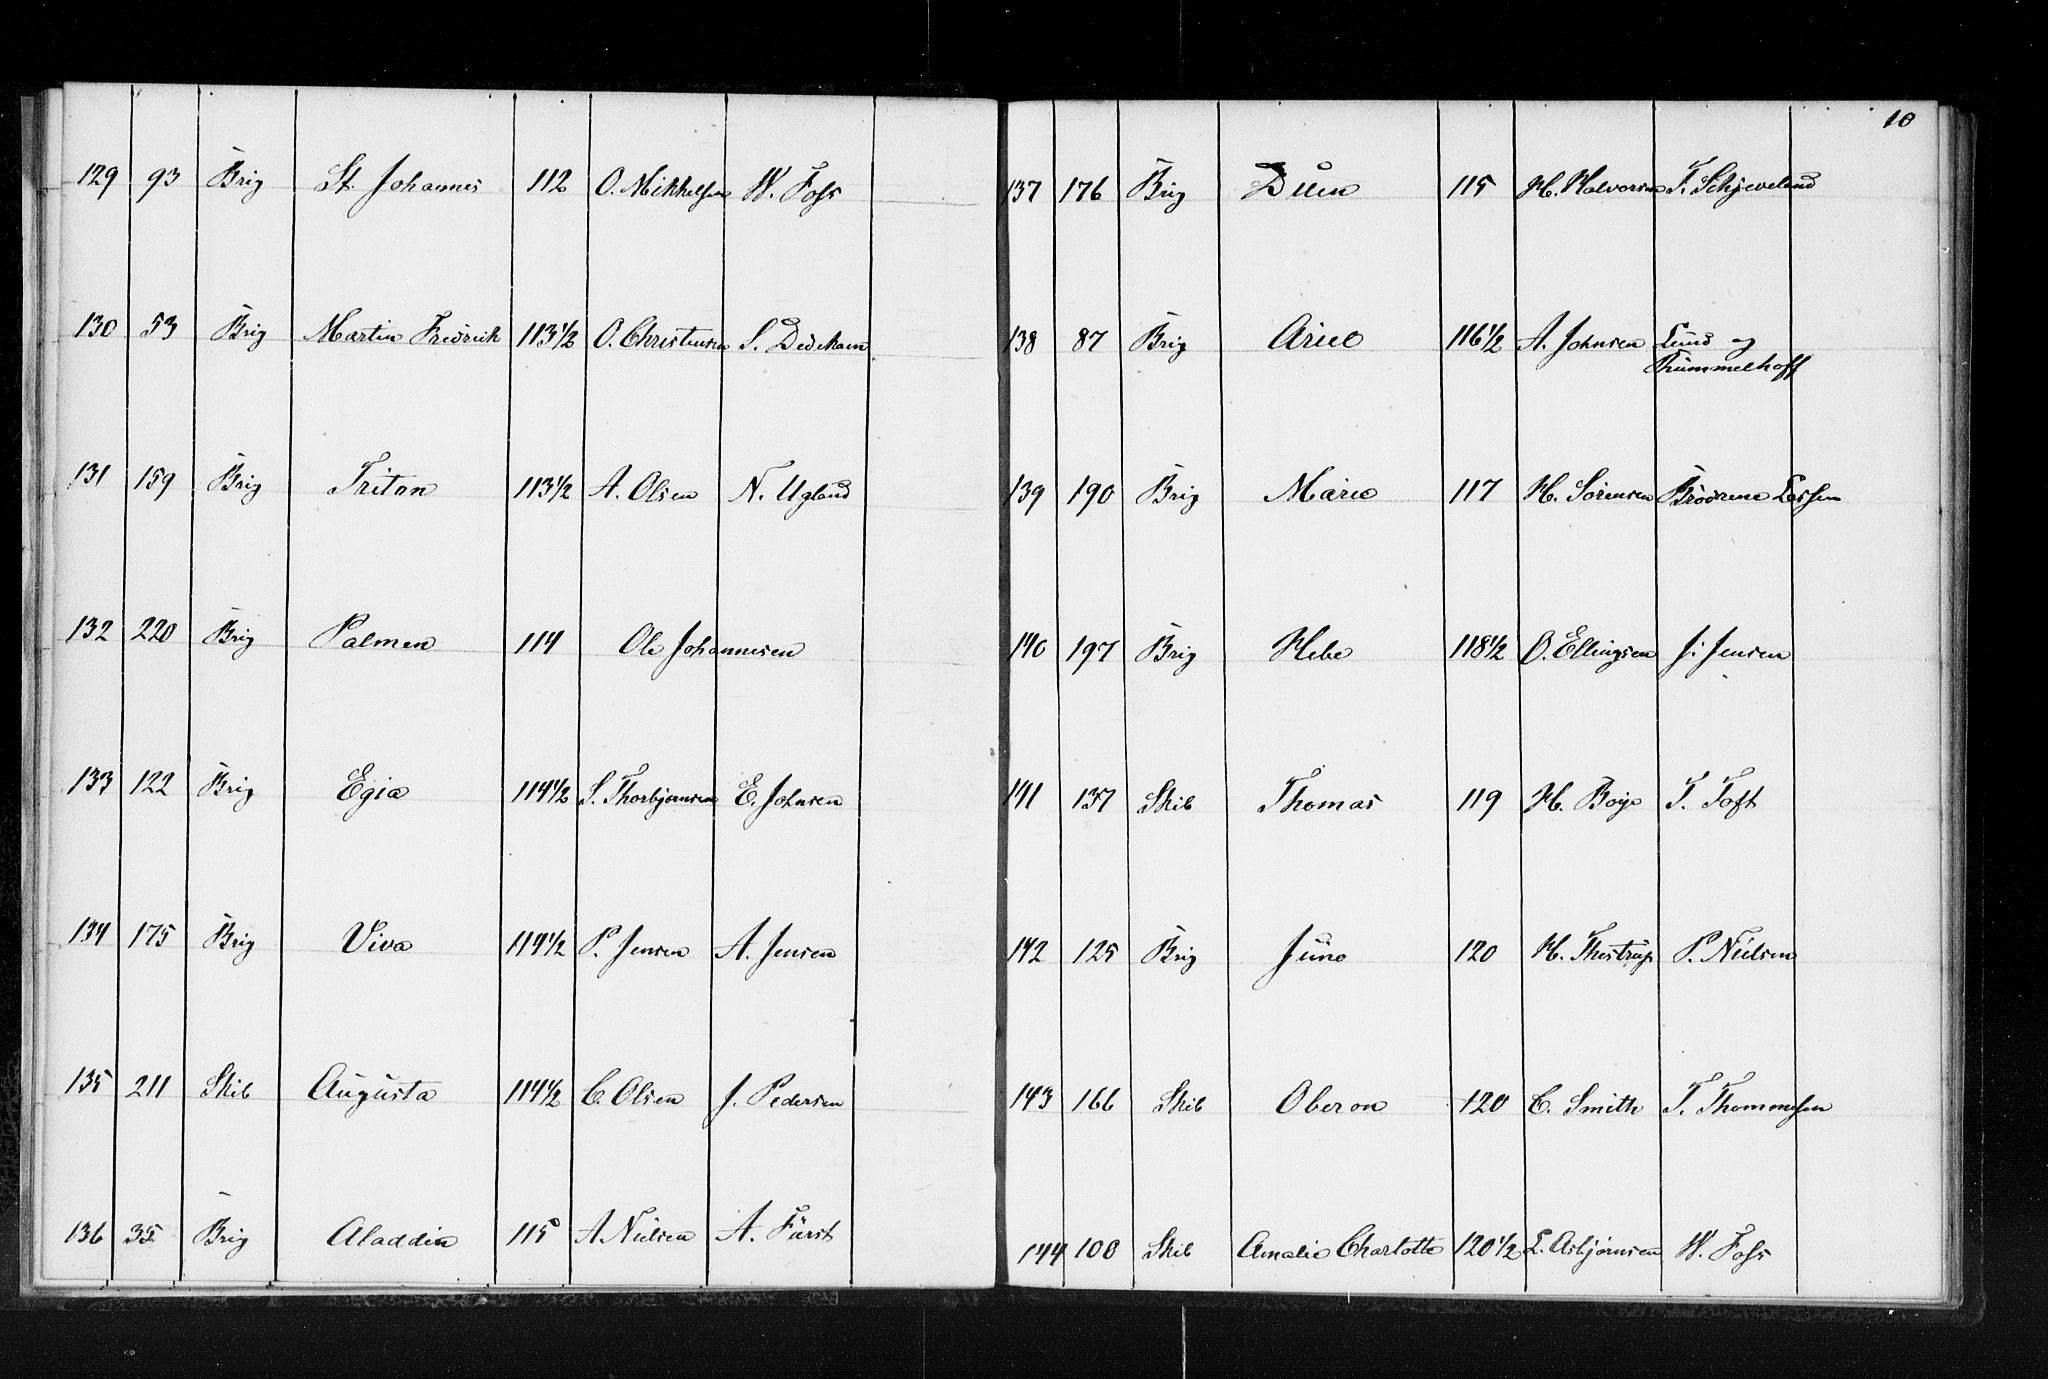 129 93 Brig St. Johannes 112 O. Mikkelsen W. Foss
130 53 Brig Martin Fredrik 113 1/2 O. Christensen S. Dedekam
131 159 Brig Triton 113 1/2 A. Olsen N. Ugland
132 220 Brig Palmen 114 Ole Johannesen
133 122 Brig Egia 114 1/2 S. Thorbjørnsen E. Johnsen
134 175 Brig Viva 114 1/2 P. Jensen A. Jensen
135 211 Skib Augusta 114 1/2 C. Olsen J. Pedersen
136 35 Brig Aladdin 115 A Nielsen A. Fürst
10
137 176 Brig 115 H. Halvorsen T. Schjeveland
138 87 Brig Ariel 116 1/2 A. Johnsen Lund og
Trummelhoff
139 190 Brig Marie 117 H. Sörensen Brödrene Lassen
140 197 Brig Hebe 118 1/2 O. Ellingsen J. Jensen
141 137 Skib Thomas 119 H. Boye T. Toft
142 125 Brig Juno 120 H. Thestrup P. Nielsen
143 166 Skib Oberon 120 C. Smith T. Thommesen
144 100 Skib Amalie Charlotte 120 1/2 L. Asbjørnsen W. Foss